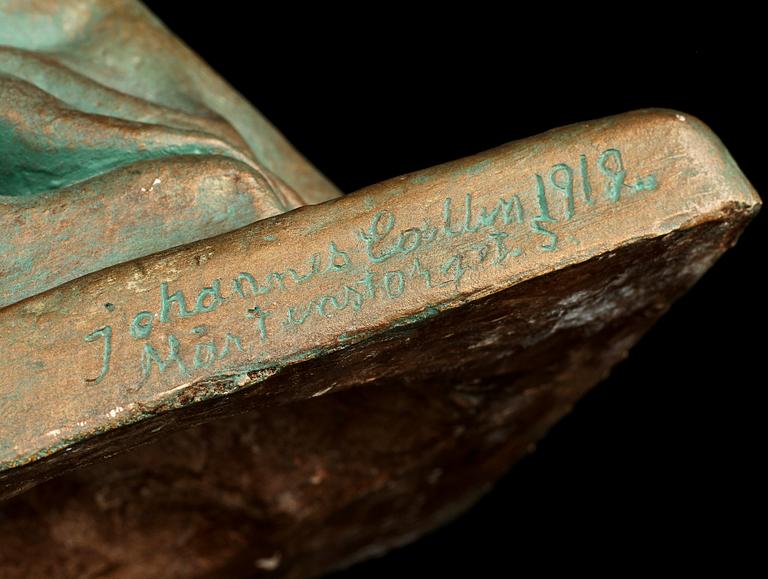 Johannes Collin 1919.
Mårtenstorget. 5.